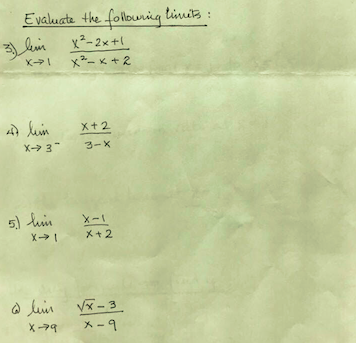 Evaluate the following limits :
3.) lim x²-2x+1
x→1 x²-x+2
4) lim x+2
x→3⁻ 3-x
5.) lim x-1
x→1 x+2
6) lim √x-3
x→9 x-9